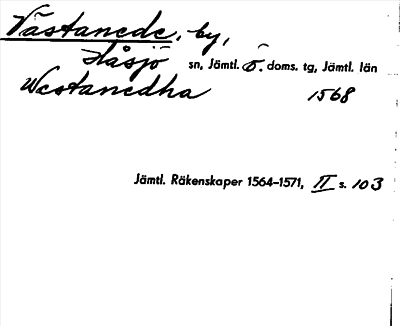 Västanede, by,
Håsjö sn, Jämtl. ö. doms. tg, Jämtl. län
Westanedha 1568
Jämtl. Räkenskaper 1564–1571, II s. 103